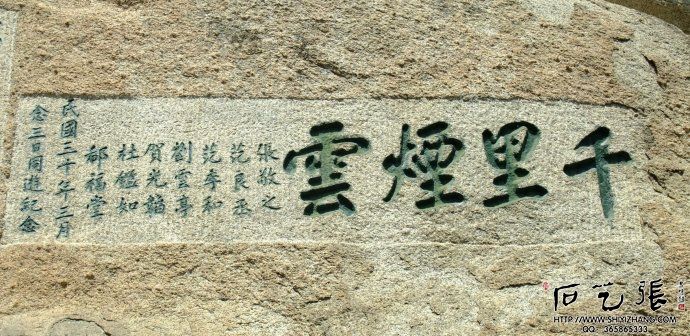 千里煙雲
張敬之
范良丞
范季和
劉雲亭
賀光韜
杜鑑如
福堂
民國三十年三月
念三日同遊紀念
石艺張
HTTP://WWW.SHIYIZHANG.COM
QQ: 365865333